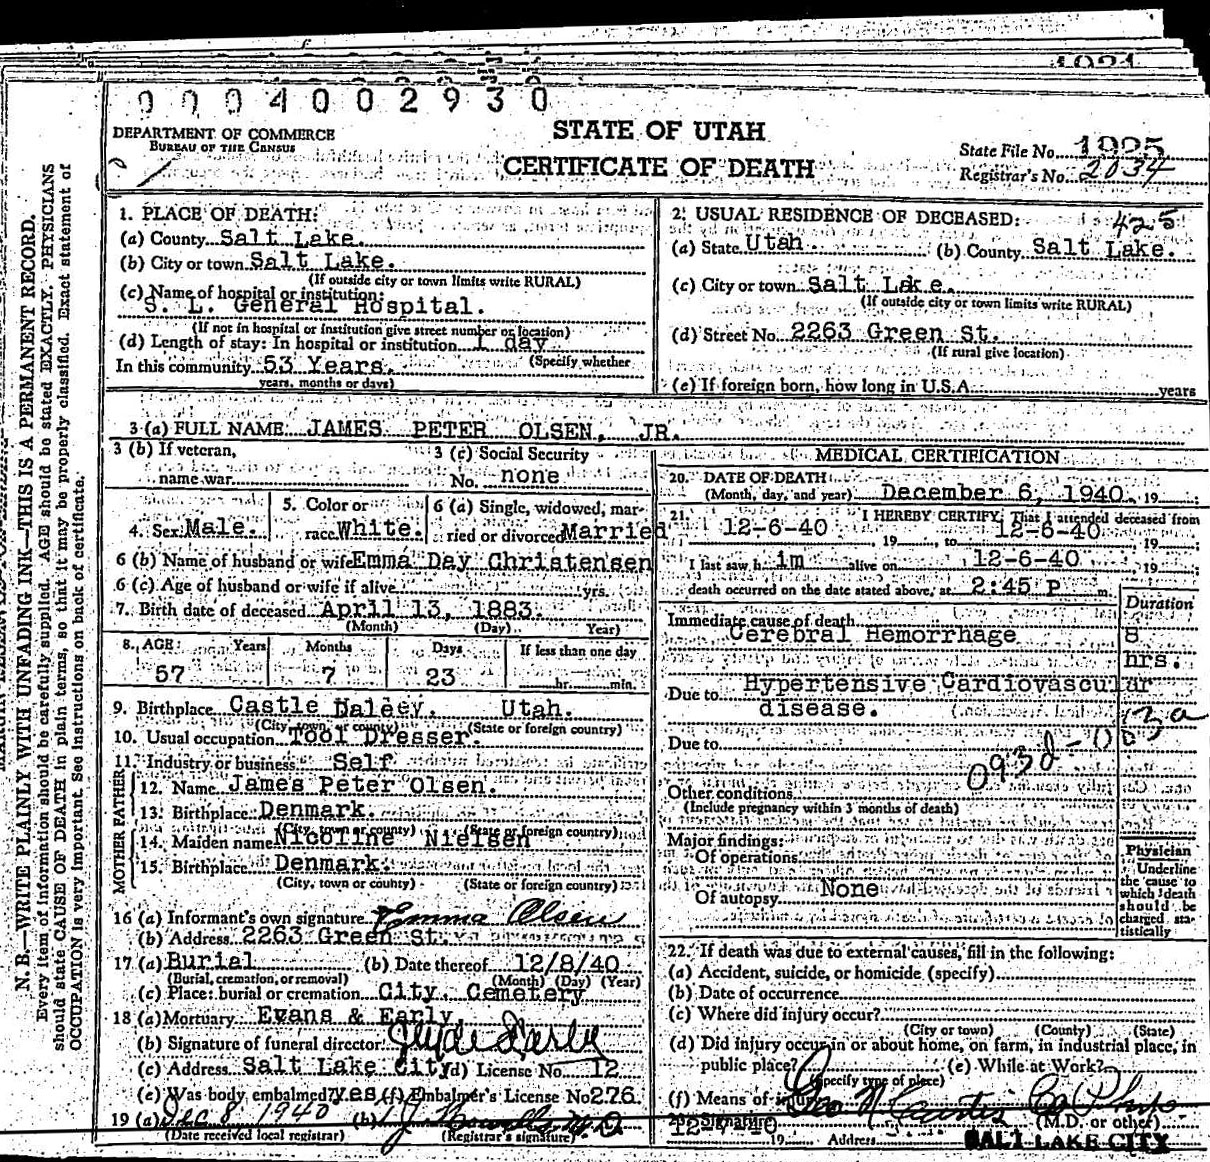 0004002930
DEPARTMENT OF COMMERCE
BUREAU OF THE CENSUS
STATE OF UTAH
CERTIFICATE OF DEATH
State File No. 1925
Registrar's No. 2034
N. B.—WRITE PLAINLY WITH UNFADING INK—THIS IS A PERMANENT RECORD.
Every item of information should be carefully supplied. AGE should be stated EXACTLY. PHYSICIANS
should state CAUSE OF DEATH in plain terms, so that it may be properly classified. Exact statement of
OCCUPATION is very important. See instructions on back of certificate.
1. PLACE OF DEATH:
(a) County Salt Lake.
(b) City or town Salt Lake.
(If outside city or town limits write RURAL)
(c) Name of hospital or institution:
S. L. General Hospital.
(If not in hospital or institution give street number or location)
(d) Length of stay: In hospital or institution 1 day
(Specify whether
In this community 53 Years.
years, months or days)
2. USUAL RESIDENCE OF DECEASED: 425
(a) State Utah (b) County Salt Lake.
(c) City or town Salt Lake.
(If outside city or town limits write RURAL)
(d) Street No. 2263 Green St.
(If rural give location)
(e) If foreign born, how long in U.S.A. years
3 (a) FULL NAME JAMES PETER OLSEN, JR.
3 (b) If veteran,
name war
3 (c) Social Security
No. none
4. Sex Male.
5. Color or
race White.
6 (a) Single, widowed, mar-
ried or divorced Married
6 (b) Name of husband or wife Emma Day Christensen
6 (c) Age of husband or wife if alive yrs.
7. Birth date of deceased April 13, 1883.
(Month) (Day) Year)
8. AGE: Years Months Days If less than one day
57 7 23 hr. min.
9. Birthplace Castle Daleey. Utah.
(City, town or county) (State or foreign country)
10. Usual occupation Tool Dresser.
11. Industry or business Self
FATHER
12. Name James Peter Olsen.
13. Birthplace Denmark.
(City, town or county) (State or foreign country)
MOTHER
14. Maiden name Nicoline Nielsen
15. Birthplace Denmark.
(City, town or county) (State or foreign country)
16 (a) Informant's own signature Emma Olsen
(b) Address 2263 Green St.
17 (a) Burial (b) Date thereof 12/8/40
(Burial, cremation, or removal) (Month) (Day) (Year)
(c) Place: burial or cremation City. Cemetery
18 (a) Mortuary Evans & Early
(b) Signature of funeral director
(c) Address Salt Lake City (d) License No. 12
(e) Was body embalmed? yes (f) Embalmer's License No 276.
19 (a) Dec 8 1940 (b)
(Date received local registrar) (Registrar's signature)
MEDICAL CERTIFICATION
20. DATE OF DEATH
(Month, day, and year) December 6, 1940. 19
21. I HEREBY CERTIFY That I attended deceased from
12-6-40 19 to 12-6-40 19
I last saw h im alive on 12-6-40 19
death occurred on the date stated above, at 2:45 P m.
Duration
Immediate cause of death
Cerebral Hemorrhage 8
hrs.
Due to Hypertensive Cardiovascular
disease.
Due to
Other conditions
(Include pregnancy within 3 months of death)
Major findings:
Of operations
Of autopsy None
Physician
Underline
the cause to
which death
should be
charged sta-
tistically
22. If death was due to external causes, fill in the following:
(a) Accident, suicide, or homicide (specify)
(b) Date of occurrence
(c) Where did injury occur?
(City or town) (County) (State)
(d) Did injury occur in or about home, on farm, in industrial place, in
public place? (e) While at Work?
(Specify type of place)
(f) Means of injury
Signature Geo N Curtis (M.D. or other)
19 Address SALT LAKE CITY